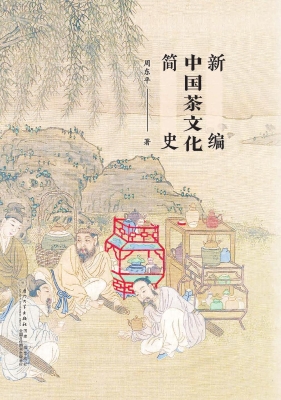 新编
中国茶文化
简史
周东平 著